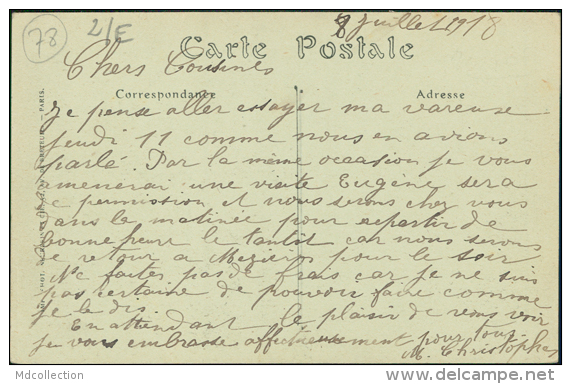 78 2/E
8 Juillet 1918
Carte Postale
Chers Cousines
Correspondance Adresse
Je pense aller essayer ma vareuse
jeudi 11 comme nous en avions
parlé. Par la même occasion je vous
amenerai une visite Eugène sera
permission et nous serons chez vous
dans la matinée pour repartir de
bonne heure le tantôt car nous serons
de retour a Mezières pour le soir
Ne faites pas de frais car je ne suis
pas certaine de pouvoir faire comme
je le dis.
En attendant le plaisir de vous voir
je vous embrasse affectueusement pour tous
M. Christophe
PARIS.
Mdcollection
www.delcampe.net